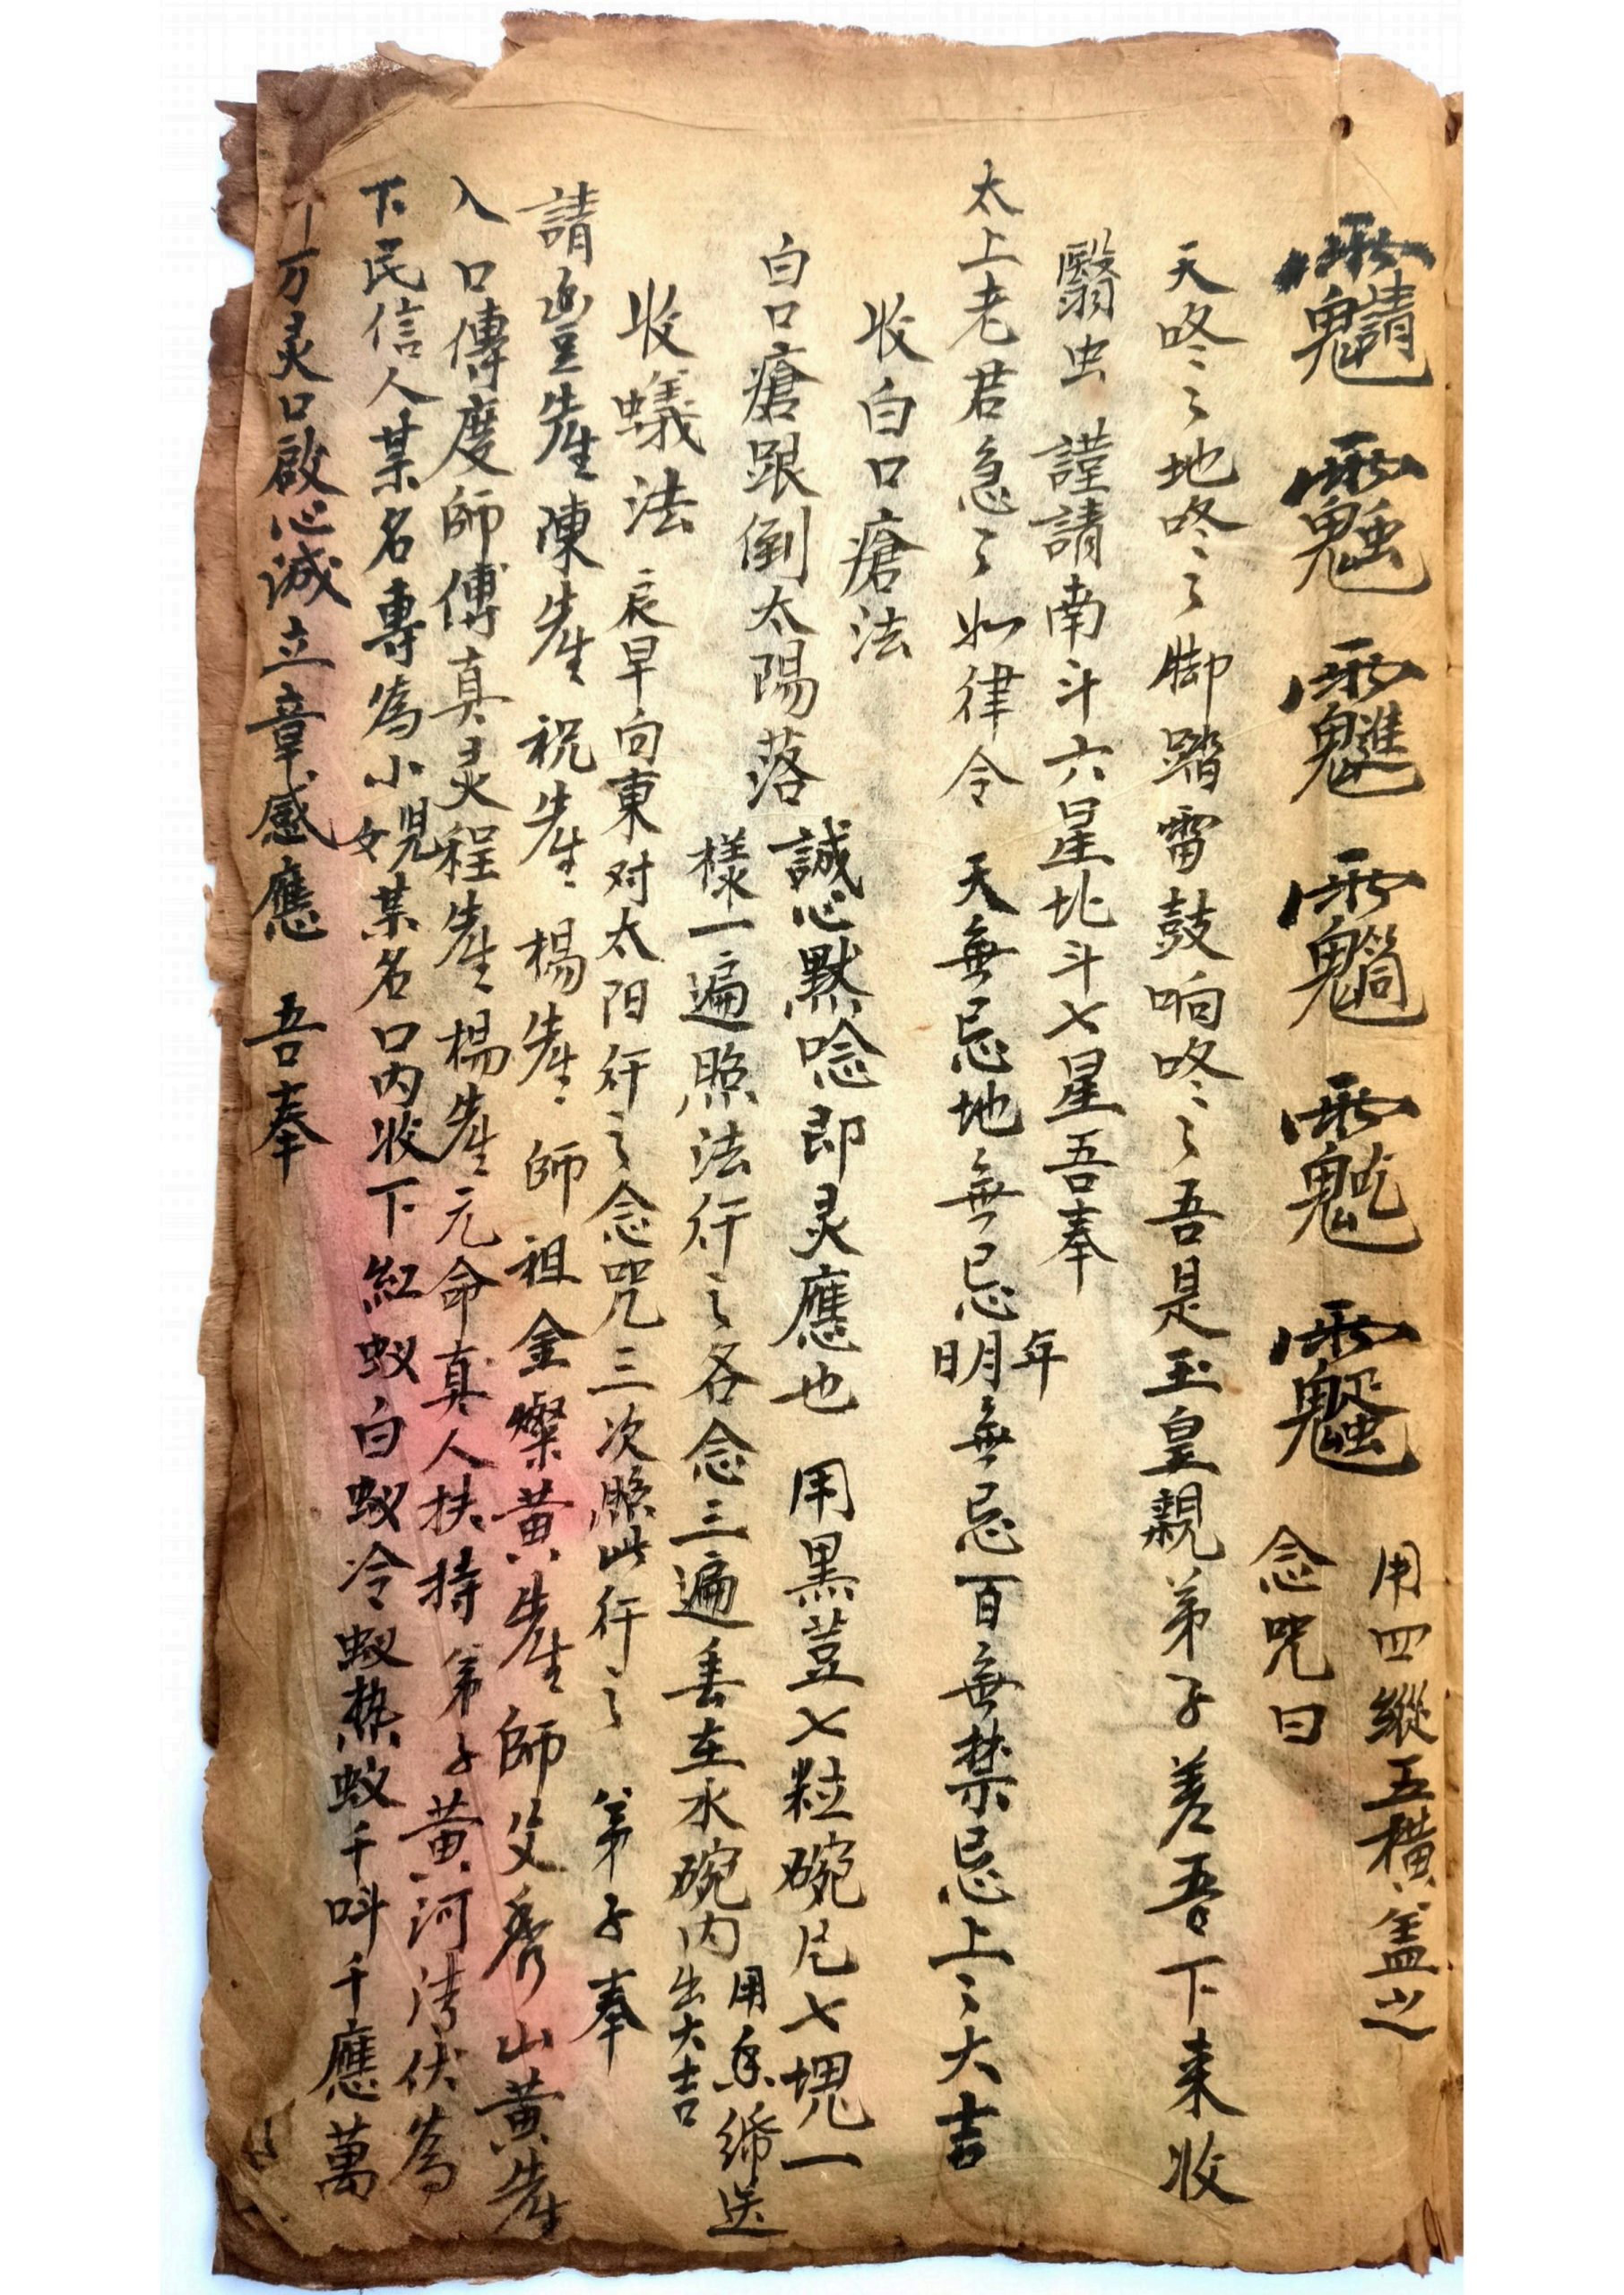 用四縱五橫盖之
念咒曰
天咚々地咚々脚踏雷鼓响咚々吾是玉皇親弟子差吾下来收
翳虫 謹請南斗六星北斗七星吾奉
太上老君急々如律令 天無忌地無忌年月日時無忌百無禁忌上々大吉
收白口瘡法
白口瘡跟倒太陽落 誠心默唸即灵應也 用黑荳七粒碗尼七塊一
樣一遍照法行之各念三遍丢在水碗内用糸綈送出大吉
收蟻法 辰早向東对太阳行之念咒三次照此行之 弟子奉
請 先生陳先生祝先生楊先生師祖金燦黄先生師父秀山黄先生
入口傳度師傅真灵程先生楊先生元命真人扶持弟子黄河清伏為
下民信人某名專為小兒女某名口内收下紅蚁白蚁冷蚁热蚁千呌千應萬
叫万灵口啟心誠立章感應 吾奉